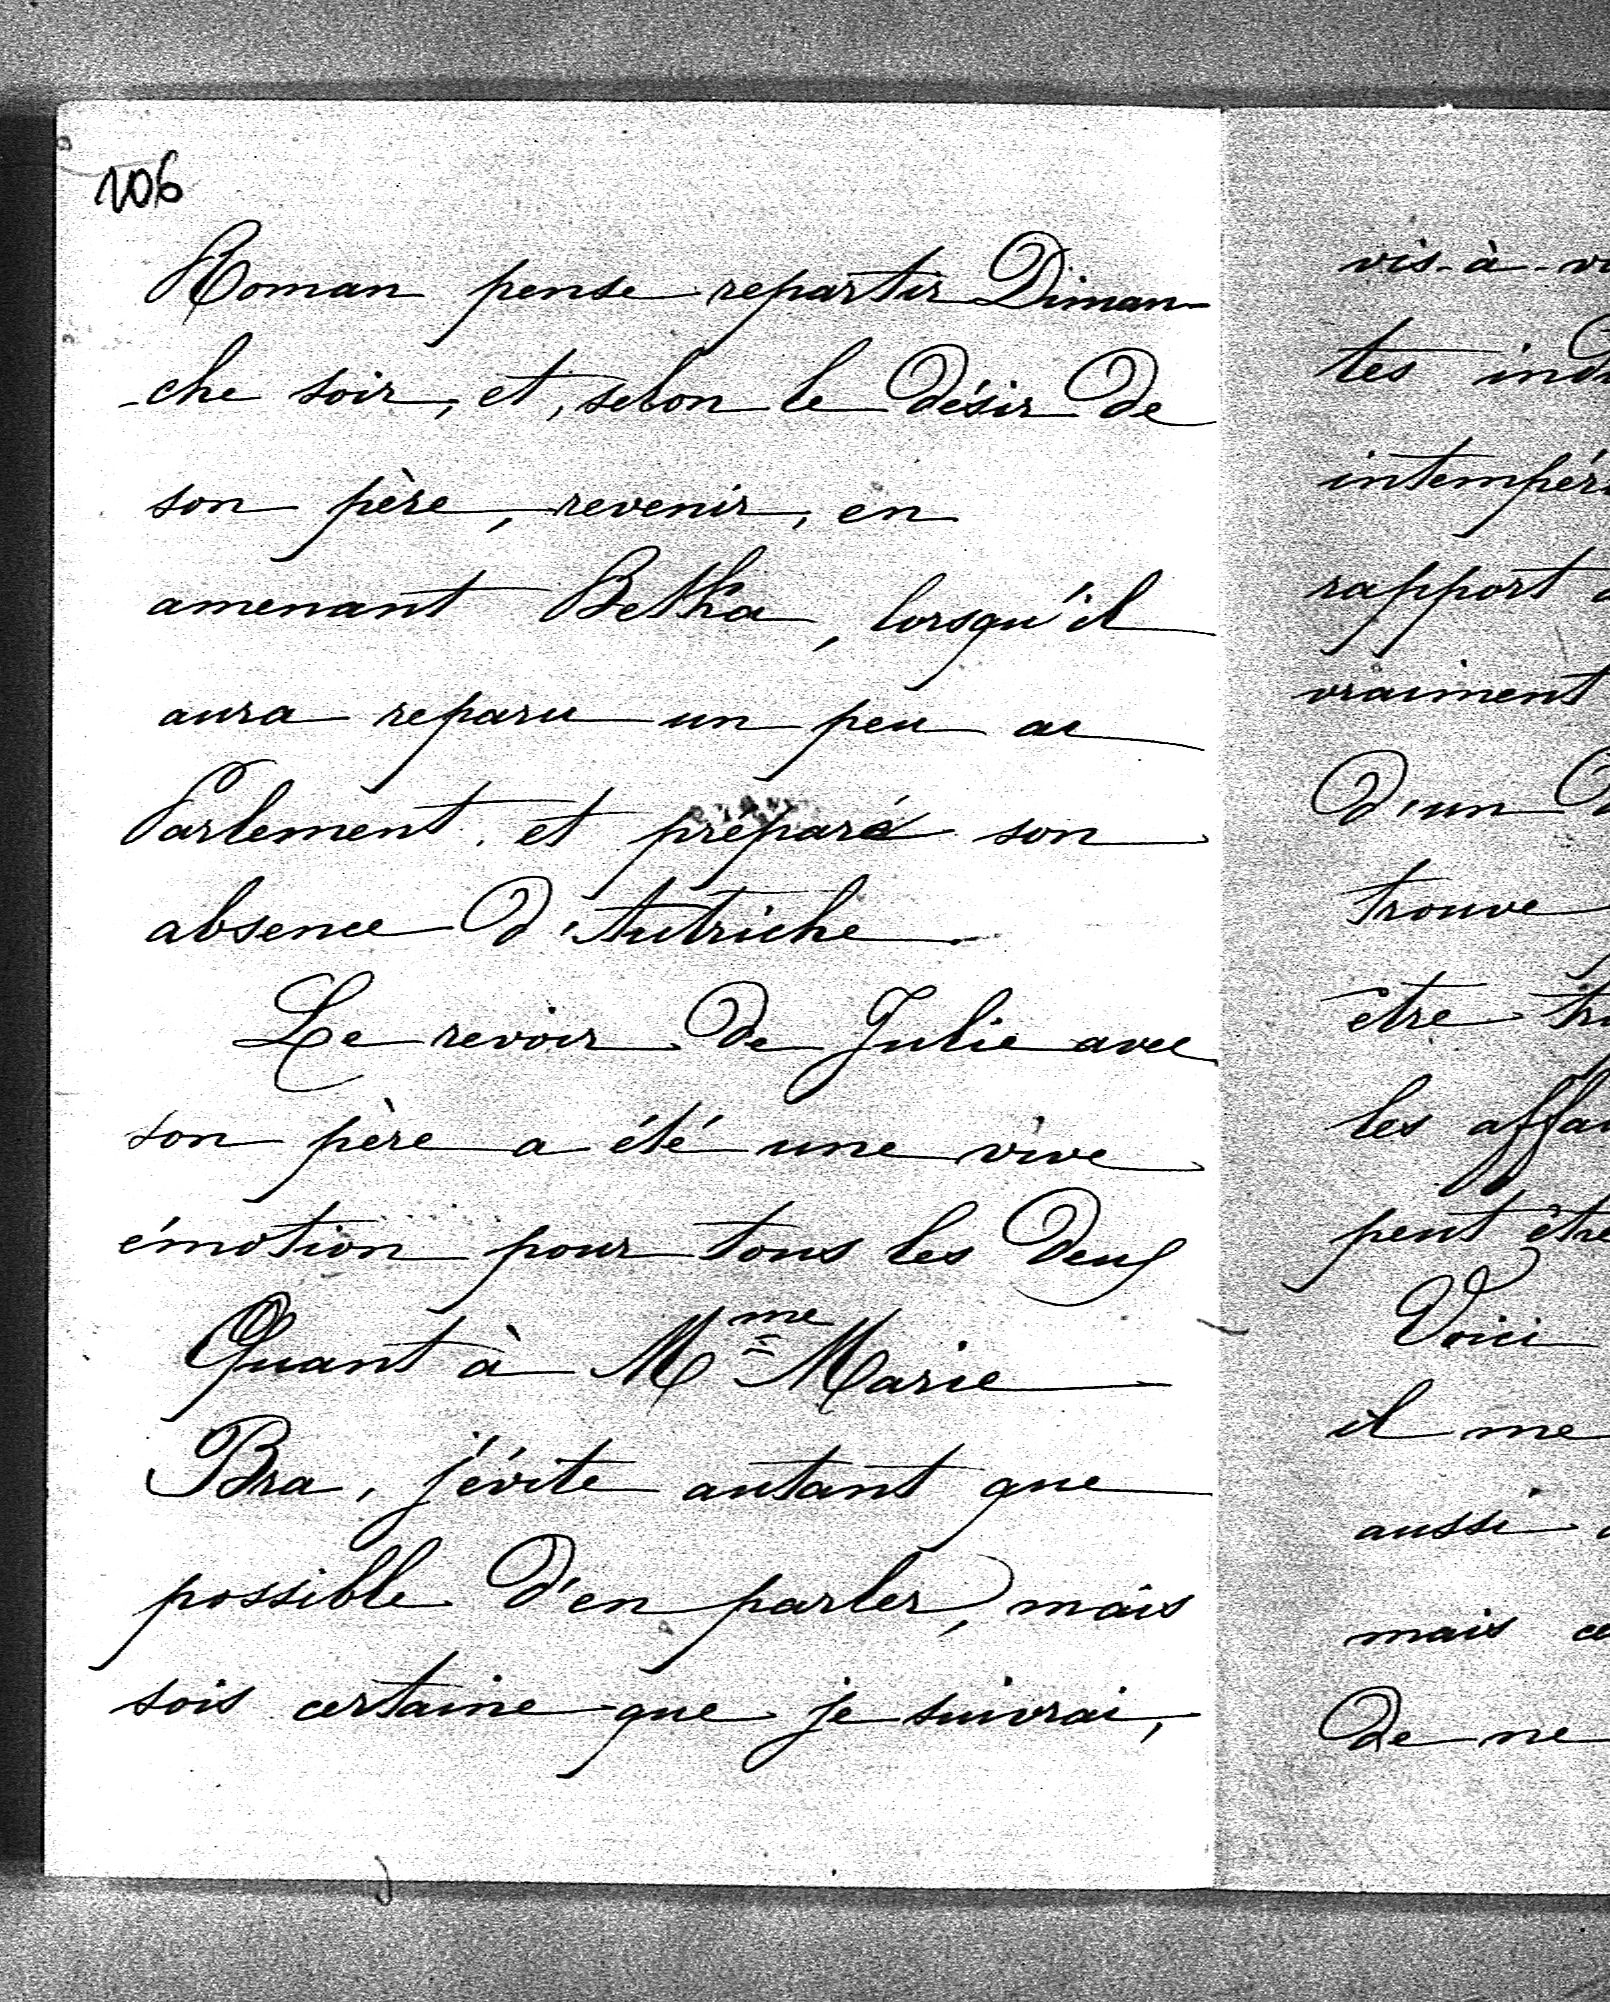 106
Roman pense repartir Diman-
-che soir, et, selon le désir de
son père, revenir, en
amenant Betka, lorsqu'il
aura reparu un peu au
Parlement et préparé son
absence d'Autriche.
Le revoir de Julie avec
son père a été une vive
émotion pour tous les deux
Quant à Mme Marie
Bra, j'évite autant que
possible d'en parler, mais
sois certaine que je suivrai,
vis-à-vi
tes ind
intempér
rapport
vraiment
d'un
trouve
être tr
les affai
peut être
Voici
il me
aussi
mais ce
de ne